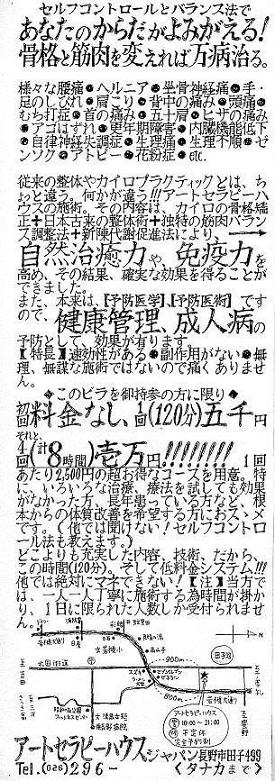 セルフコントロールとバランス法で
あなたのからだがよみがえる!
骨格と筋肉を変えれば万病治る。
様々な腰痛●ヘルニア●坐骨神経痛●手・
足のしびれ●肩こり●背中の痛み●頭痛●
むち打症●首の痛み●五十肩●ヒザの痛み
●アゴはずれ●更年期障害●内臓機能低下
●自律神経失調症●生理痛●生理不順●ゼ
ンソク●アトピー●花粉症●etc.
従来の整体やカイロプラクティックとは、ち
ょっと違う。何かが違う!!!アートセラピーハ
ウスの施術。その内容は、カイロの骨格矯
正+日本古来の整体術+独特の筋肉バラン
ス調整法+新陳代謝促進法により、
自然治癒力や、免疫力を
高め、その結果、確実な効果を得ることが
できました。
また、本来は、【予防医学】、【予防医術】です
ので、健康管理、成人病の
予防として、効果が有ります。
【特長】速効性がある●副作用がない●無
理、無謀な施術ではないので痛くありませ
ん。
◆このビラを御持参の方に限り◆
初回料金なし、1回(120分)五千円
それと、
4回(計8時間)壱万円!!!!!!!! 1回
あたり2,500円の超お得なコースを用意。特
に、いろいろな治療、療法を試しても効果
がなかった方、長年患っている方など、根
本からの体質改善を希望する方におススメ
です。(他では聞けない!セルフコントロー
ル法も教えます。)
どこよりも充実した内容、技術、だから、
この時間(120分)。そして低料金システム!!!
他では絶対にマネできない!【注】当方で
は、一人一人丁寧に施術する為時間が掛か
り、1日に限られた人数しか受付られませ
ん。
北国街道
800m
900m
田子郵
アートセラピーハウス
営 10:00~21:00
休 不定休
完全予約制
アートセラピーハウスジャパン長野市田子499
Tel.(026)296- (タナカまで)